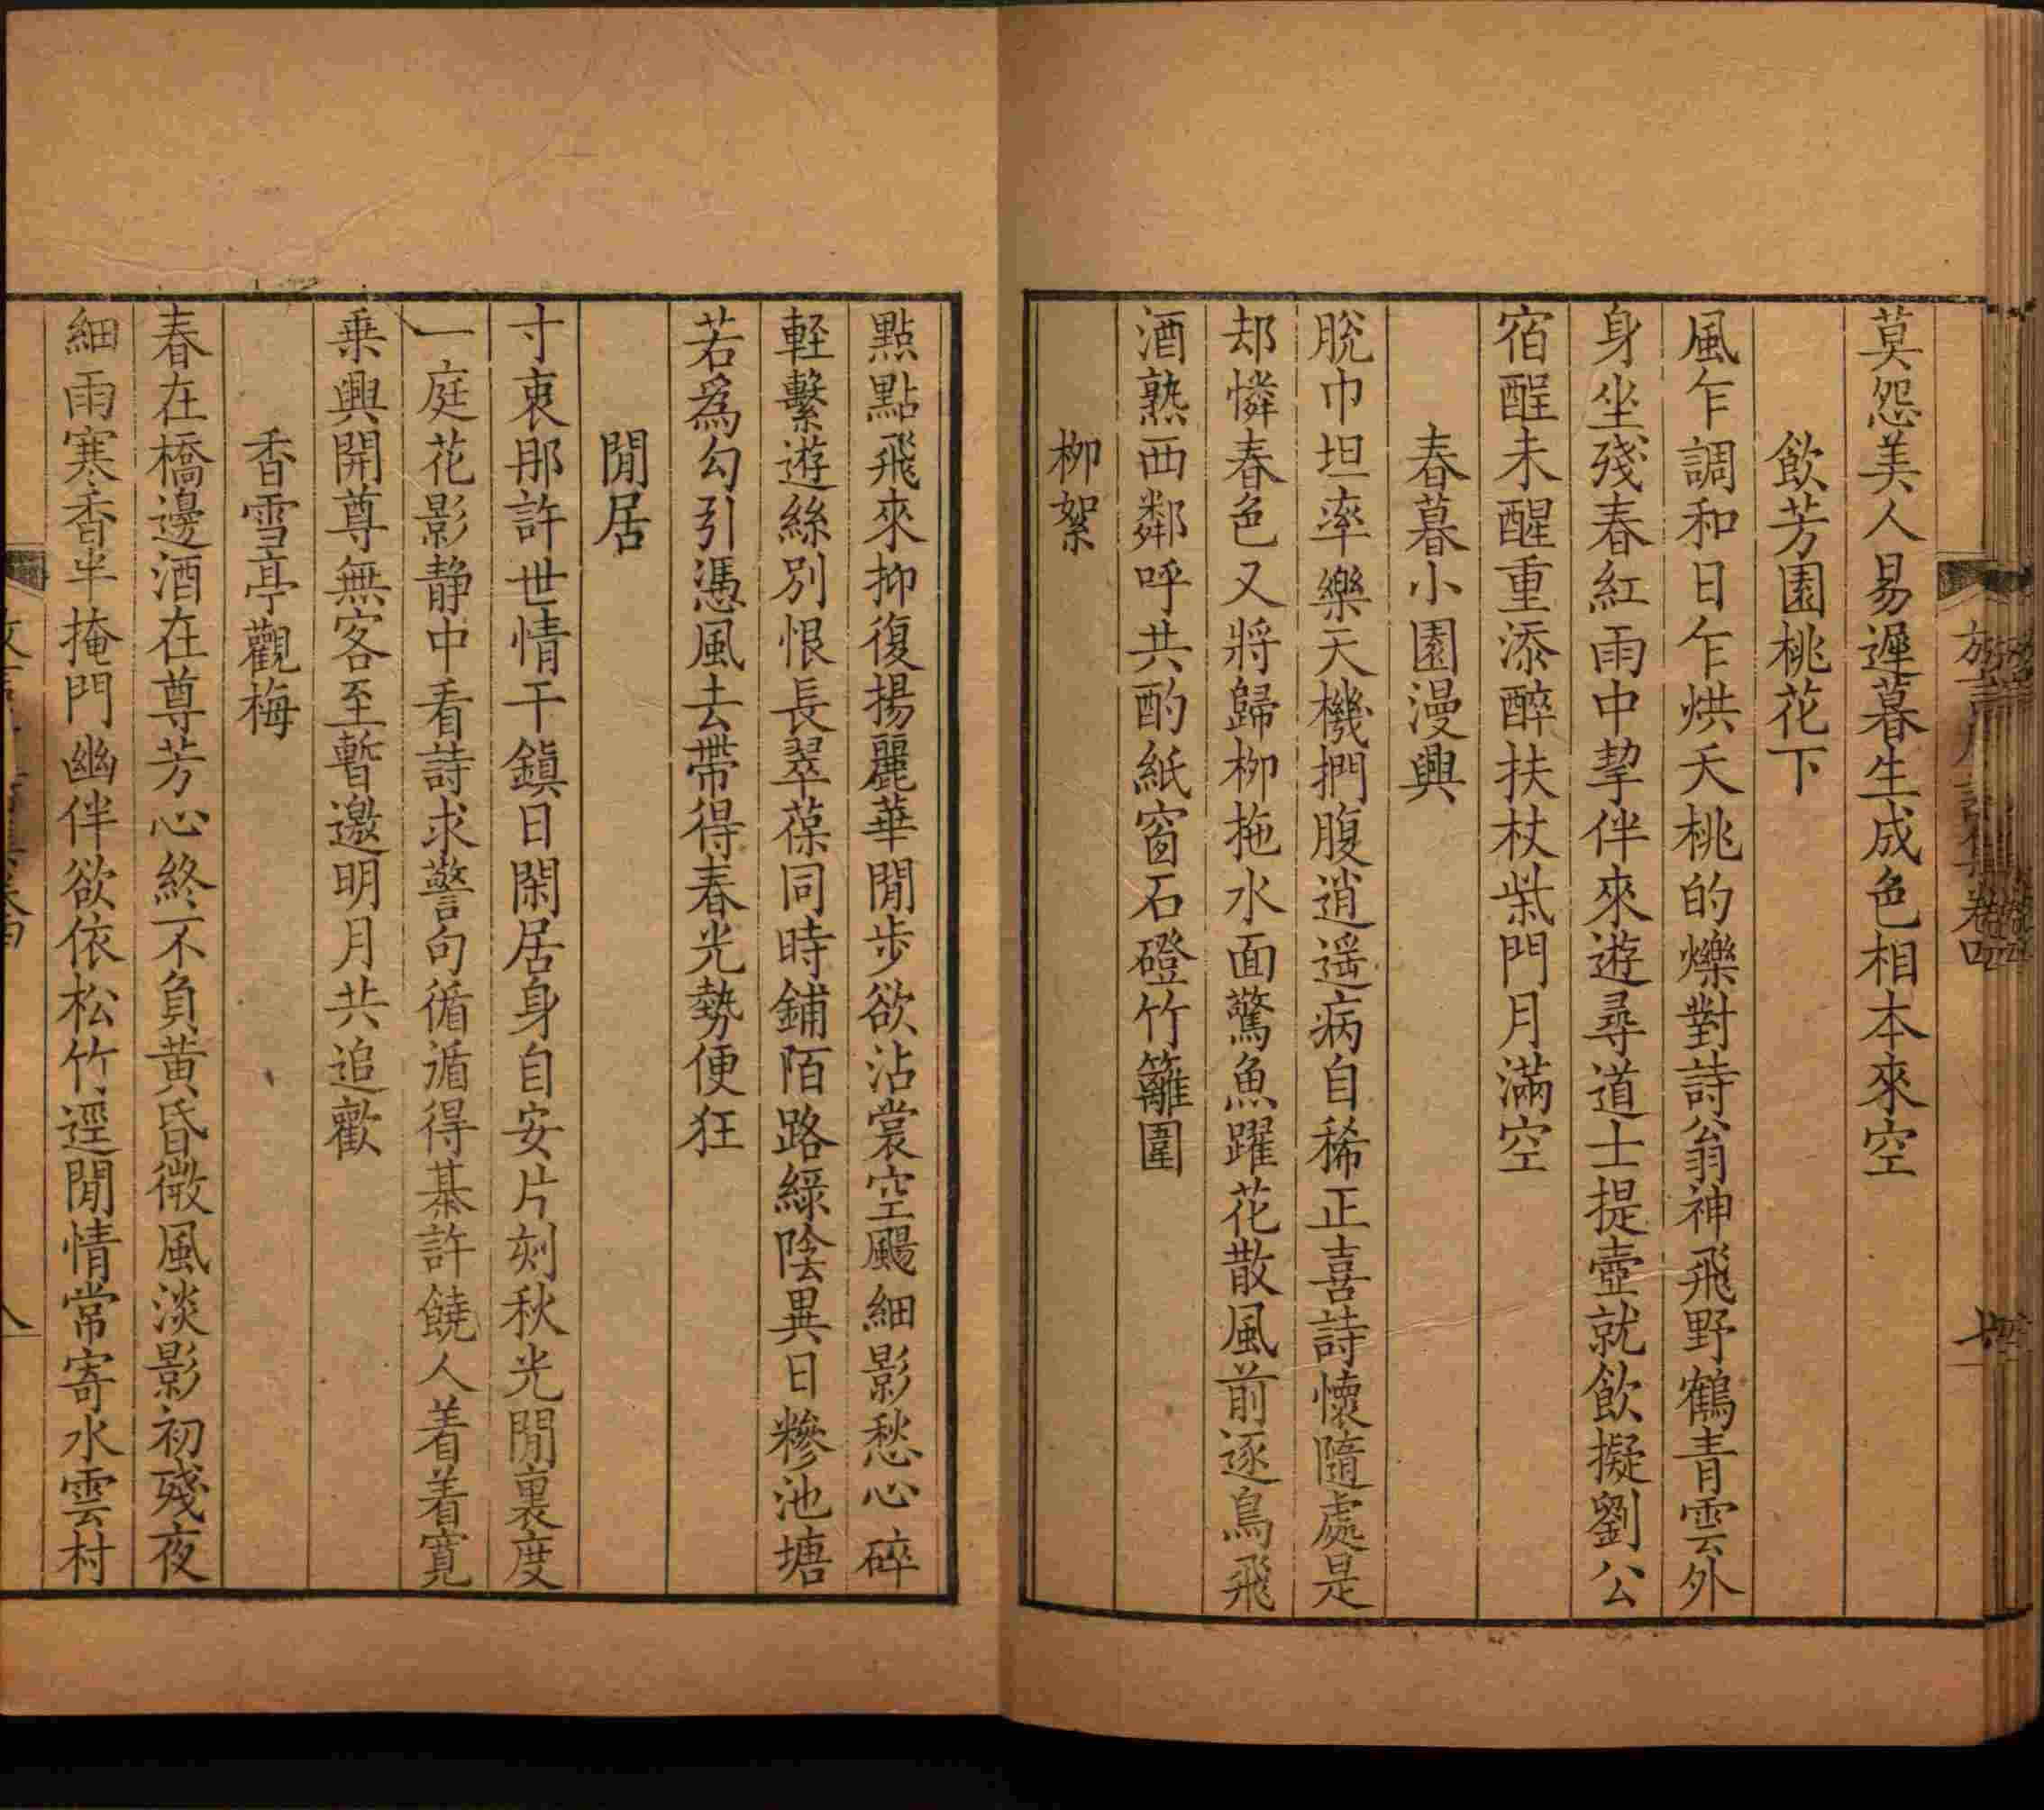 莫怨美人易遲暮生成色相本來空
飲芳園桃花下
風乍調和日乍烘夭桃的爍對詩翁神飛野鶴青雲外
身坐殘春紅雨中挈伴來遊尋道士提壺就飲擬劉公
宿酲未醒重添醉扶杖柴門月滿空
春暮小園漫興
脫巾坦率樂天機捫腹逍遥病自稀正喜詩懷隨處是
却憐春色又將歸柳拖水面驚魚躍花散風前逐鳥飛
酒熟西鄰呼共酌紙窗石磴竹籬圍
柳絮
點點飛來抑復揚麗華閒步欲沾裳空颺細影愁心碎
輕繫遊絲別恨長翠葆同時鋪陌路綠陰異日糝池塘
若爲勾引憑風去帶得春光勢便狂
閒居
寸衷那許世情干鎮日閑居身自安片刻秋光閒裏度
一庭花影静中看詩求警句循循得棊許饒人着着寬
乗興開尊無客至暫邀明月共追歡
香雪亭觀梅
春在橋邊酒在尊芳心終不負黄昏微風淡影初殘夜
細雨寒香半掩門幽伴欲依松竹逕閒情常寄水雲村